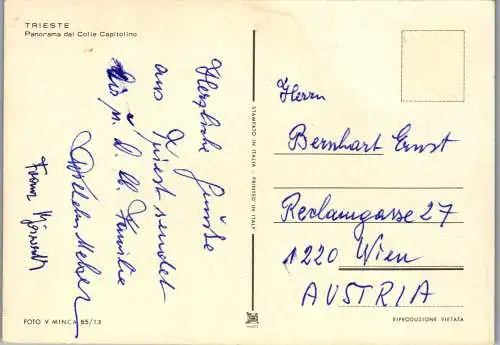 TRIESTE
Panorama dal Colle Capitolino
Herzliche Grüße
aus Triest sendet
D. U. Familie
Wilhelm
Franz
FOTO V MINCA 65/13
STAMPATO IN ITALIA - PRINTED IN ITALY
Herrn
Bernhart Ernst
Reclamgasse 27
1220 Wien
AUSTRIA
RIPRODUZIONE VIETATA